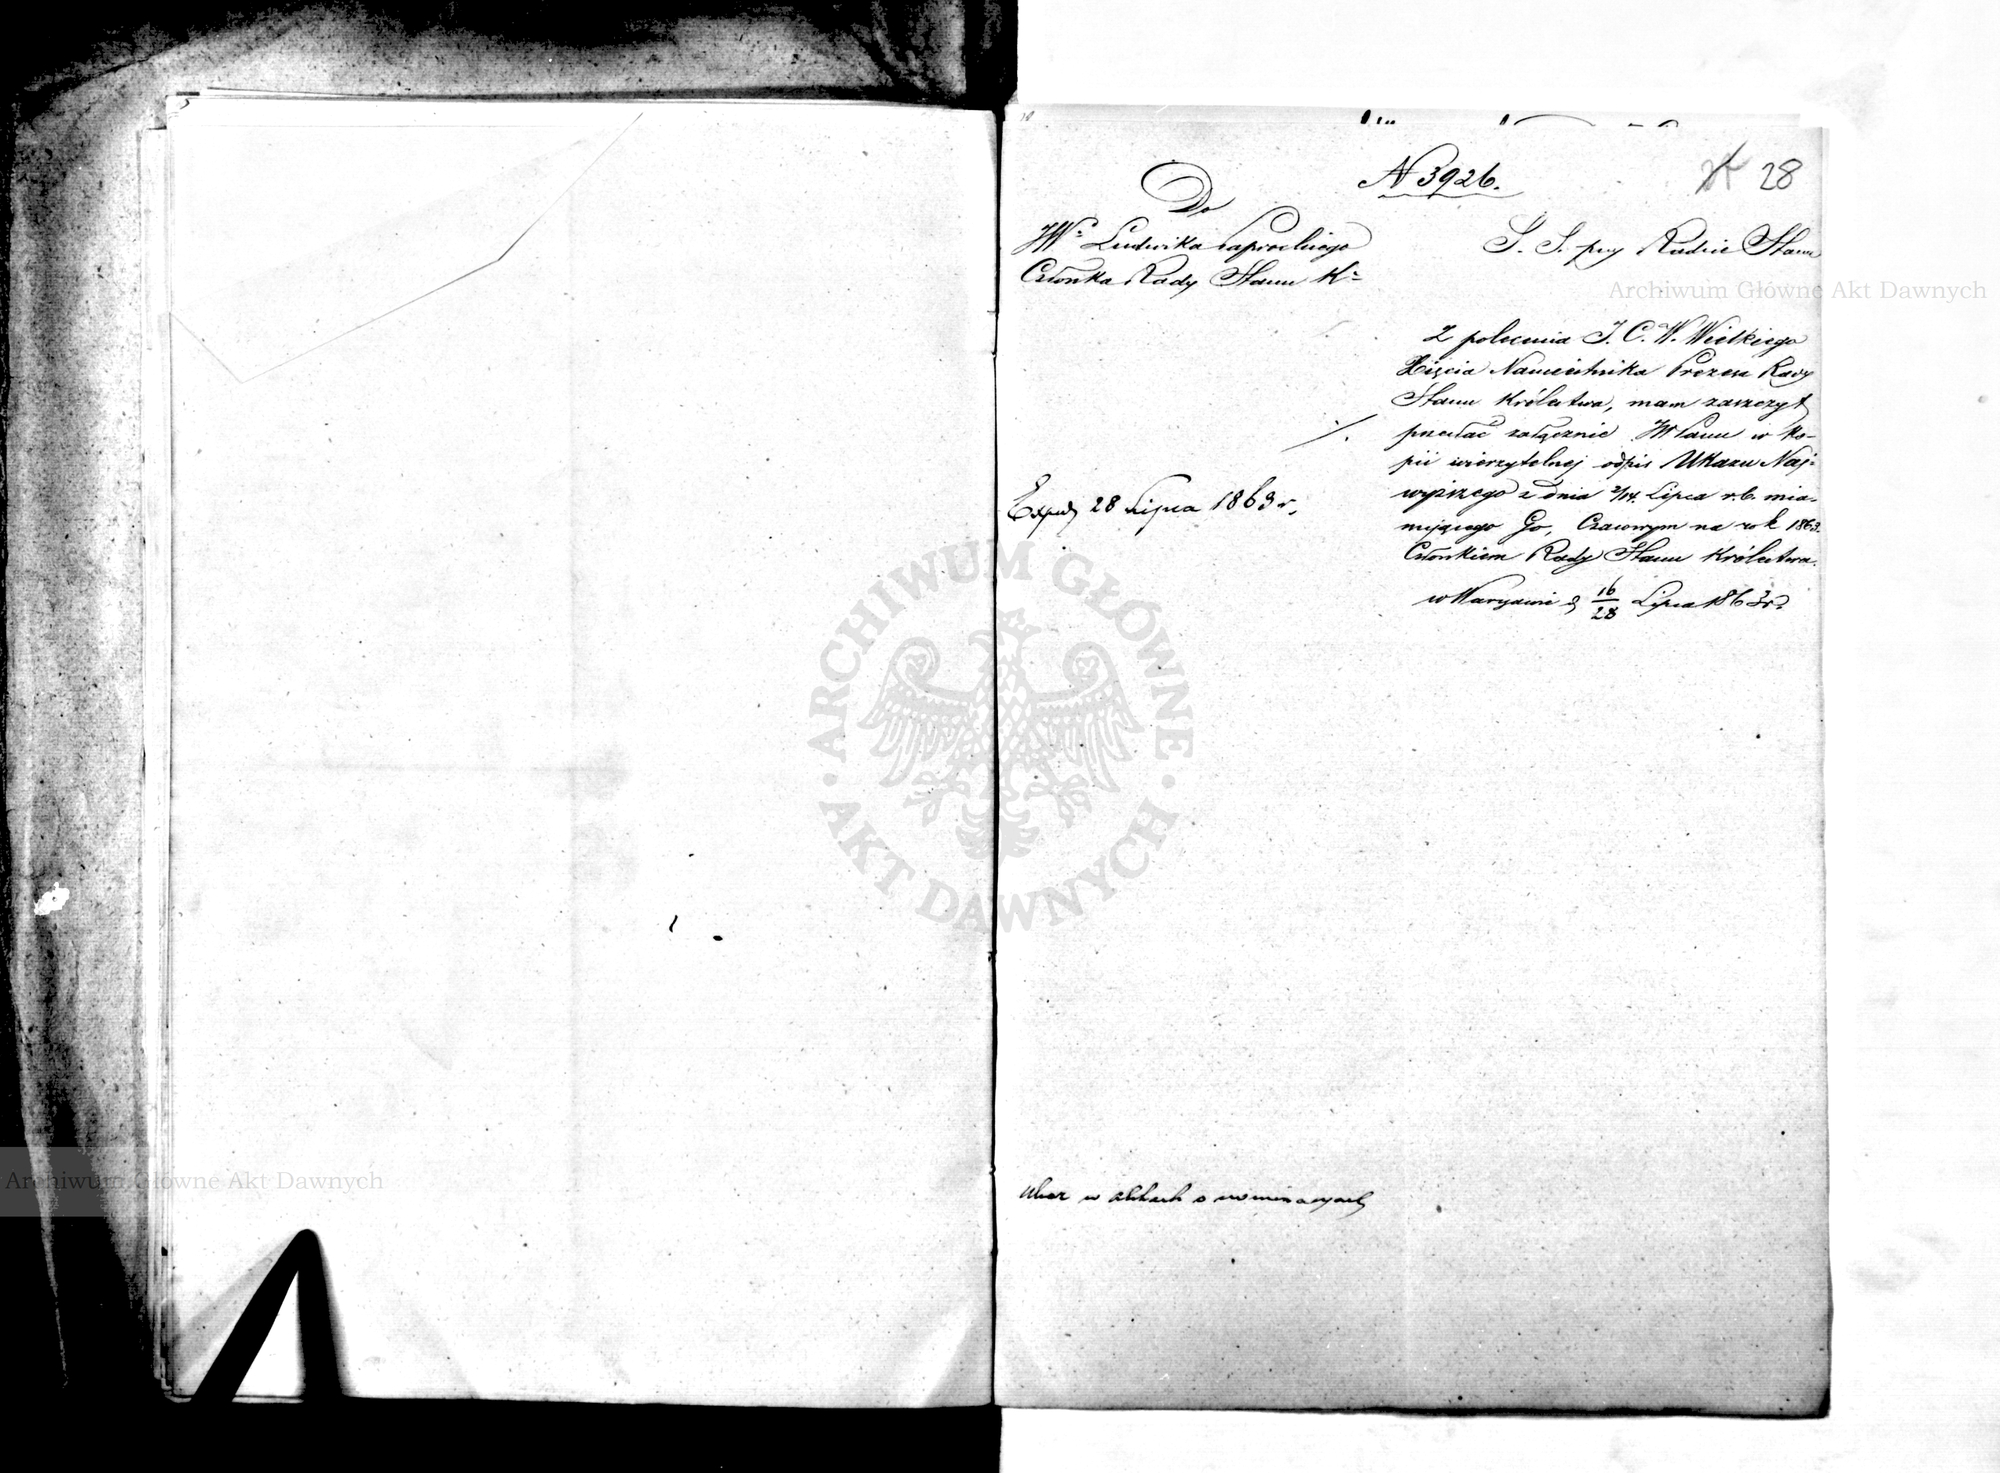 N 3926.
28
Do
JWo Ludwika Paprockiego
Członka Rady Stanu Ka
S. S. przy Radzie Stanu
Z polecenia J. C. W. Wielkiego
Xięcia Namiestnika Prezesa Rady
Stanu Królestwa, mam zaszczyt
przesłać załącznie JW Panu w ko-
pii wierzytelnej odpis Ukazu Naj-
wyższego z dnia 2/14 Lipca r. b. mia-
nującego Go, Czasowym na rok 1863
Członkiem Rady Stanu Królestwa.
w Warszawie d 16/28 Lipca 1863 r.
Exped 28 Lipca 1863 r.
Ukaz w aktach o nominacyach
Archiwum Główne Akt Dawnych
ARCHIWUM GŁÓWNE
AKT DAWNYCH
Archiwum Główne Akt Dawnych